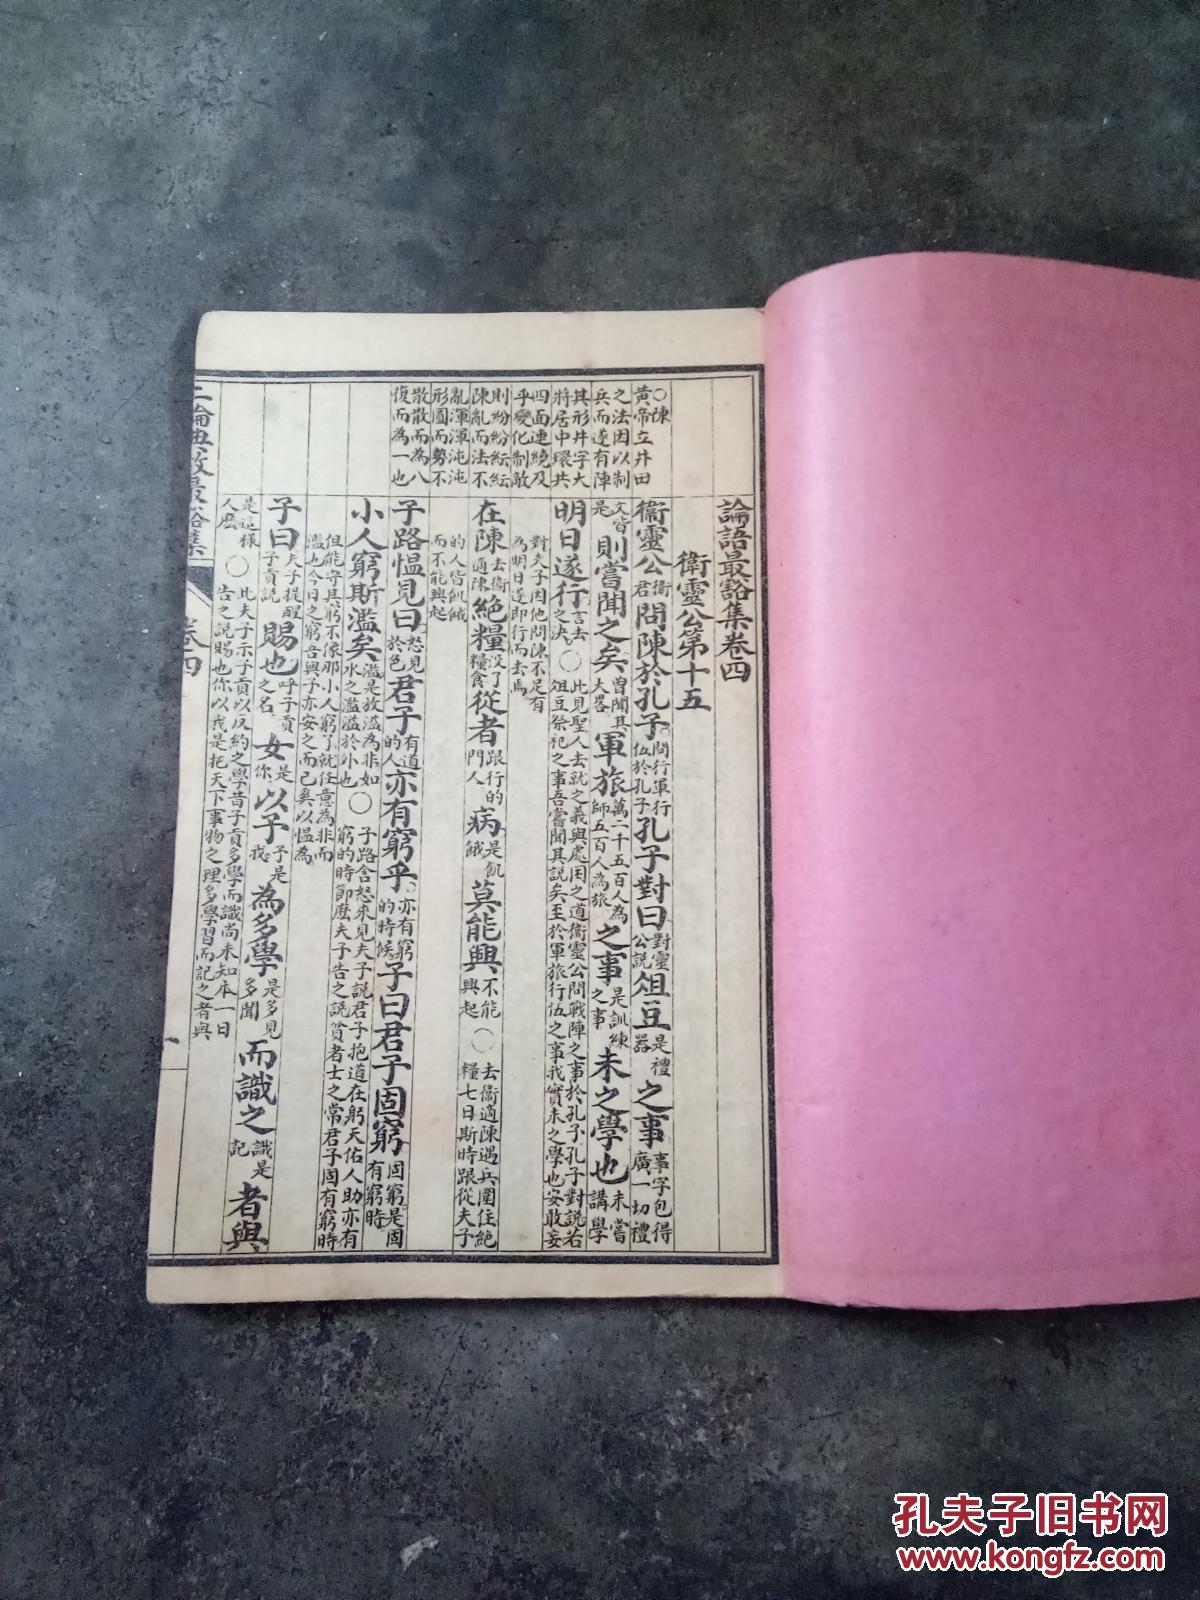 論語最豁集卷四
衛靈公第十五
○陳
黃帝立井田
之法因以制
兵而遂有陣
其形井字大
將居中環共
四面連繞及
乎變化制敵
則紛紛紜紜
陳亂而法不
亂渾渾沌沌
形圓而勢不
散散而為八
復而為一也
衞靈公衞君問陳於孔子問行軍行伍於孔子孔子對曰對靈公說俎豆是禮器之事事字包得廣一切禮
文皆是則嘗聞之矣曾聞其大畧軍旅萬二千五百人為師五百人為旅之事是訓練之事未之學也未嘗講學
明日遂行言去之決○此見聖人去就之義與處困之道衞靈公問戰陣之事於孔子孔子對說若俎豆祭祀之事吾嘗聞其說矣至於軍旅行伍之事我實未之學也安敢妄
對夫子因他問陳不足有為明日遂即行而去焉
在陳去衞適陳絕糧没了糧食從者跟行的門人病是飢餓莫能興不能興起○去衞適陳遇兵圍住絕糧七日斯時跟從夫子
的人皆飢餓而不能興起
子路慍見曰怒見於色君子有道的人亦有窮乎亦有窮的時候子曰君子固窮固窮是固有窮時
小人窮斯濫矣濫是放溢為非如水之濫溢於外也○子路含怒來見夫子說君子抱道在躬天佑人助亦有窮的時節麽夫子告之說貧者士之常君子固有窮時
但能守其窮不像那小人窮了就任意為非而濫也今日之窮吾與子亦安之而已奚以慍為
子曰夫子提醒子貢說賜也呼子貢之名女是你以予予是我為多學是多見多聞而識之識是記者與
是這樣人麽○此夫子示子貢以反約之學昔子貢多學而識尚未知本一日告之說賜也你以我是把天下事物之理多學習而記之者與
二論典故最豁集
卷四
一
孔夫子旧书网
www.kongfz.com